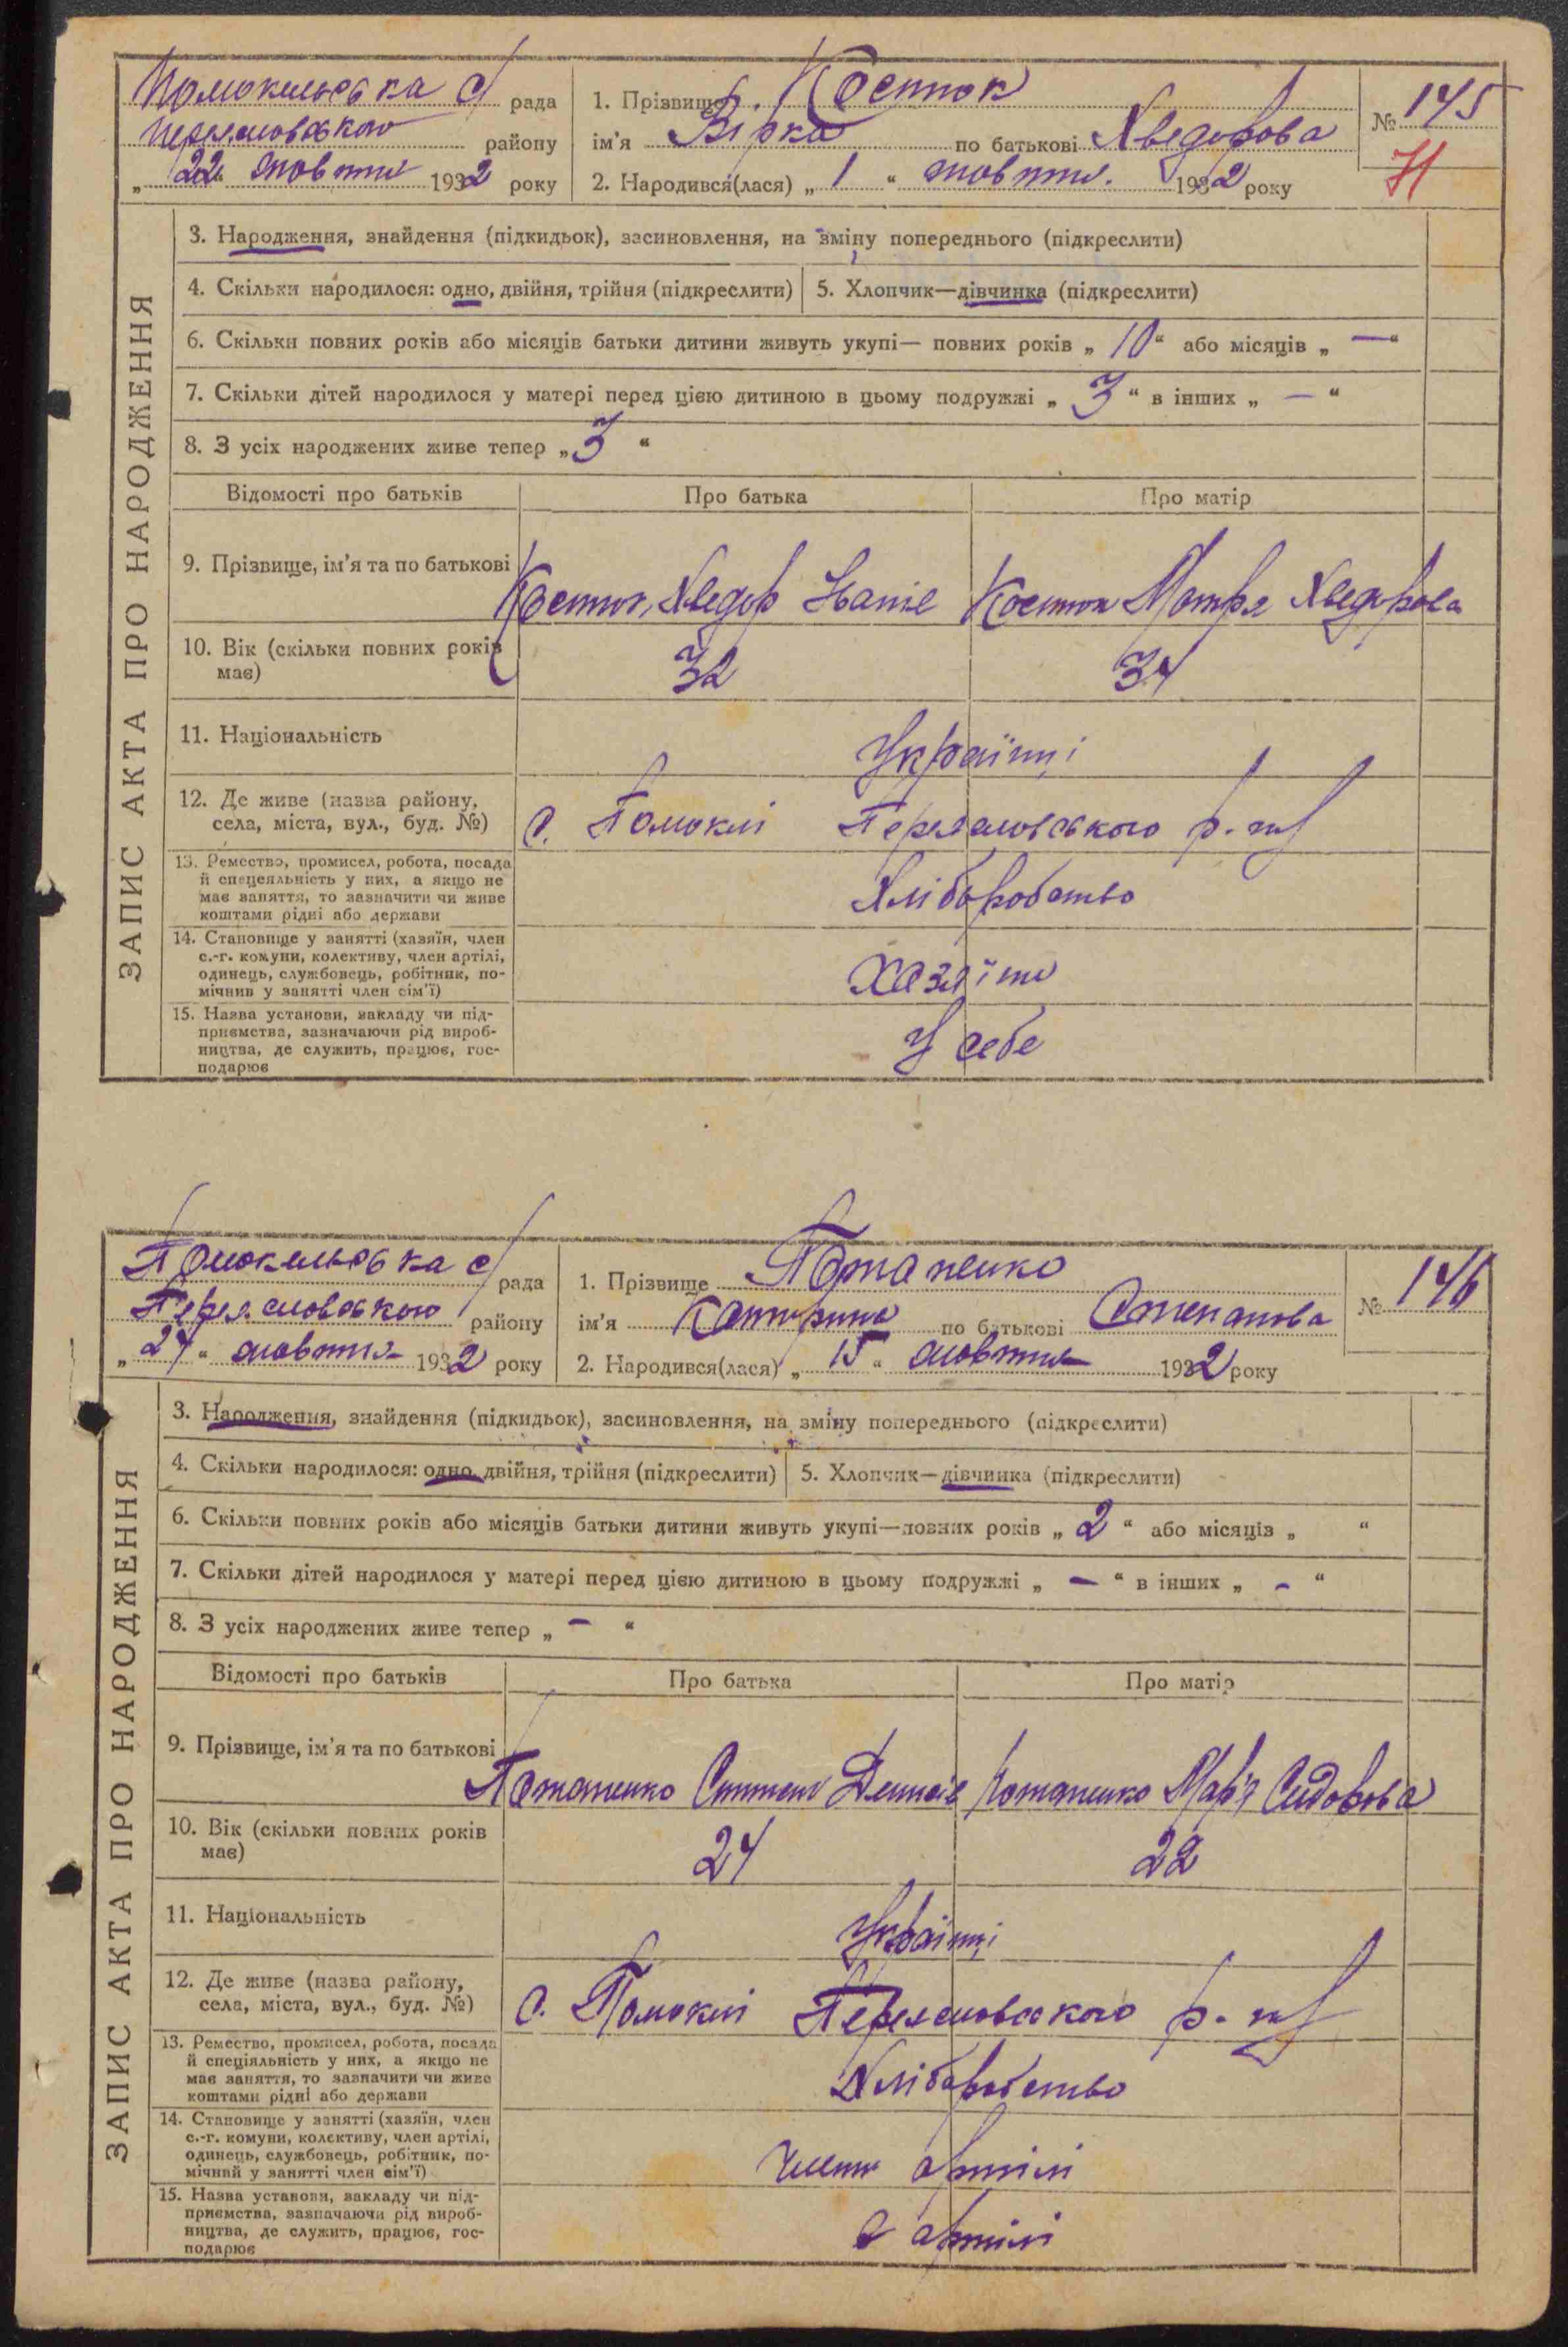 Помокельська с/ рада
Переяславського району
„22“ жовтня 1932 року
1. Прізвище Косток
ім'я Вірка по батькові Хведорова
2. Народився(лася) „1“ жовтня 1932 року
№ 145
71
ЗАПИС АКТА ПРО НАРОДЖЕННЯ
3. Народження, знайдення (підкидьок), засиновлення, на зміну попереднього (підкреслити)
4. Скільки народилося: одно, двійня, трійня (підкреслити)
5. Хлопчик—дівчинка (підкреслити)
6. Скільки повних років або місяців батьки дитини живуть укупі— повних років „10“ або місяців „—“
7. Скільки дітей народилося у матері перед цією дитиною в цьому подружжі „3“ в інших „—“
8. З усіх народжених живе тепер „3“
Відомості про батьків Про батька Про матір
9. Прізвище, ім'я та по батькові
Косток Хведор Іванів Косток Мотря Хведорова
10. Вік (скільки повних років
має)
32 34
11. Національність
Українці
12. Де живе (назва району,
села, міста, вул., буд. №)
с. Помоклі Переяславського р-ну
13. Ремество, промисел, робота, посада
й спецеяльність у них, а якщо не
має заняття, то зазначити чи живе
коштами рідні або держави
Хліборобство
14. Становище у занятті (хазяїн, член
с.-г. комуни, колективу, член артілі,
одинець, службовець, робітник, по-
мічнив у занятті член сім'ї)
Хазяїни
15. Назва установи, закладу чи під-
приємства, зазначаючи рід вироб-
ництва, де служить, працює, гос-
подарює
У себе
Помокельська с/ рада
Переяславського району
„24“ жовтня 1932 року
1. Прізвище Потапенко
ім'я Катерина по батькові Степанова
2. Народився(лася) „15“ жовтня 1932 року
№ 146
ЗАПИС АКТА ПРО НАРОДЖЕННЯ
3. Народження, знайдення (підкидьок), засиновлення, на зміну попереднього (підкреслити)
4. Скільки народилося: одно, двійня, трійня (підкреслити)
5. Хлопчик—дівчинка (підкреслити)
6. Скільки повних років або місяців батьки дитини живуть укупі—повних років „2“ або місяців „ “
7. Скільки дітей народилося у матері перед цією дитиною в цьому подружжі „—“ в інших „-“
8. З усіх народжених живе тепер „—“
Відомості про батьків Про батька Про матір
9. Прізвище, ім'я та по батькові
Потапенко Степан Потапенко Мар'я Сидорова
10. Вік (скільки повних років
має)
24 22
11. Національність
Українці
12. Де живе (назва району,
села, міста, вул., буд. №)
с. Помоклі Переяславського р-ну
13. Ремество, промисел, робота, посада
й спеціяльність у них, а якщо не
має заняття, то зазначити чи живе
коштами рідні або держави
Хліборобство
14. Становище у занятті (хазяїн, член
с.-г. комуни, колективу, член артілі,
одинець, службовець, робітник, по-
мічний у занятті член сім'ї)
Члени артілі
15. Назва установи, закладу чи під-
приємства, зазначаючи рід вироб-
ництва, де служить, працює, гос-
подарює
в артілі